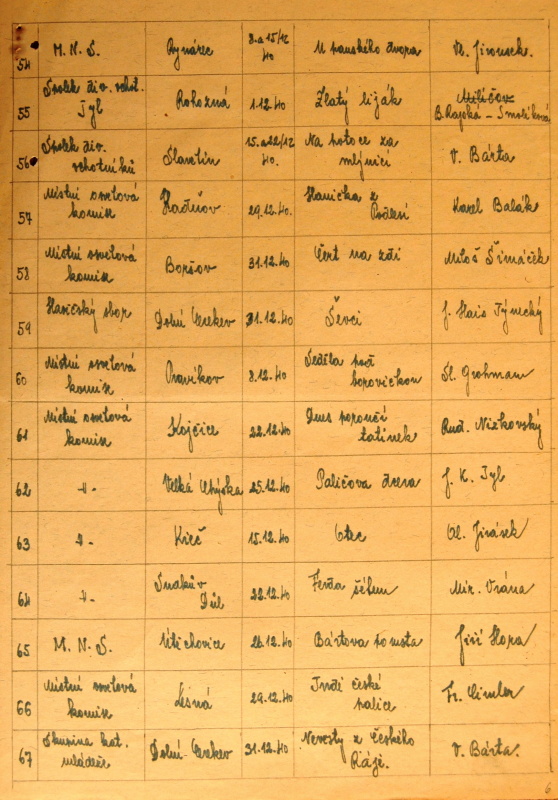 54 M. N. S. Rynárec 8. a 15/12 40 U panského dvora Vl. Jirousek.
55 Spolek div. ochot. Tyl Rohozná 1.12.40 Zlatý liják B. Rajská – Smolíková
56 Spolek div. ochotníků Slavětín 15. a 22/12 40. Na potoce za mlýnicí V. Bárta
57 Místní osvětová komise Haďňov 29.12.40. Hanička z Podlesí Karel Balák
58 Místní osvětová komise Boršov 31.12.40 Čert na zdi Miloš Šimáček
59 Hasičský sbor Dolní Cerekev 31.12.40 Ševci J. Hais Týnecký
60 Místní osvětová komise Pravíkov 8.12.40 Seděla pod borovičkou Sl. Grohman
61 Místní osvětová komise Kojčice 22.12.40 Dnes poroučí tatínek Rud. Nížkovský
62 -"- Velká Chýška 25.12.40 Paličova dcera J. K. Tyl
63 -"- Kteč 15.12.40 Otec Al. Jirásek
64 -"- Důl 22.12.40 Ferda šéfem Mir. Vrána
65 M. N. S. Útěchovice 26.12.40 Bártova pomsta Jiří Hora
66 Místní osvětová komise Lesná 29.12.40 Tvrdé české palice Fr. Cimler
67 Skupina kat. mládeže Dolní-Cerekev 31.12.40 Nevěsty z Českého Ráje. V. Bárta.
6